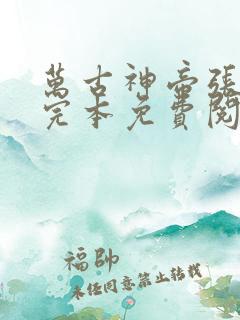 萬古神帝張
完本免費閱
福帥
未経同意禁止转載